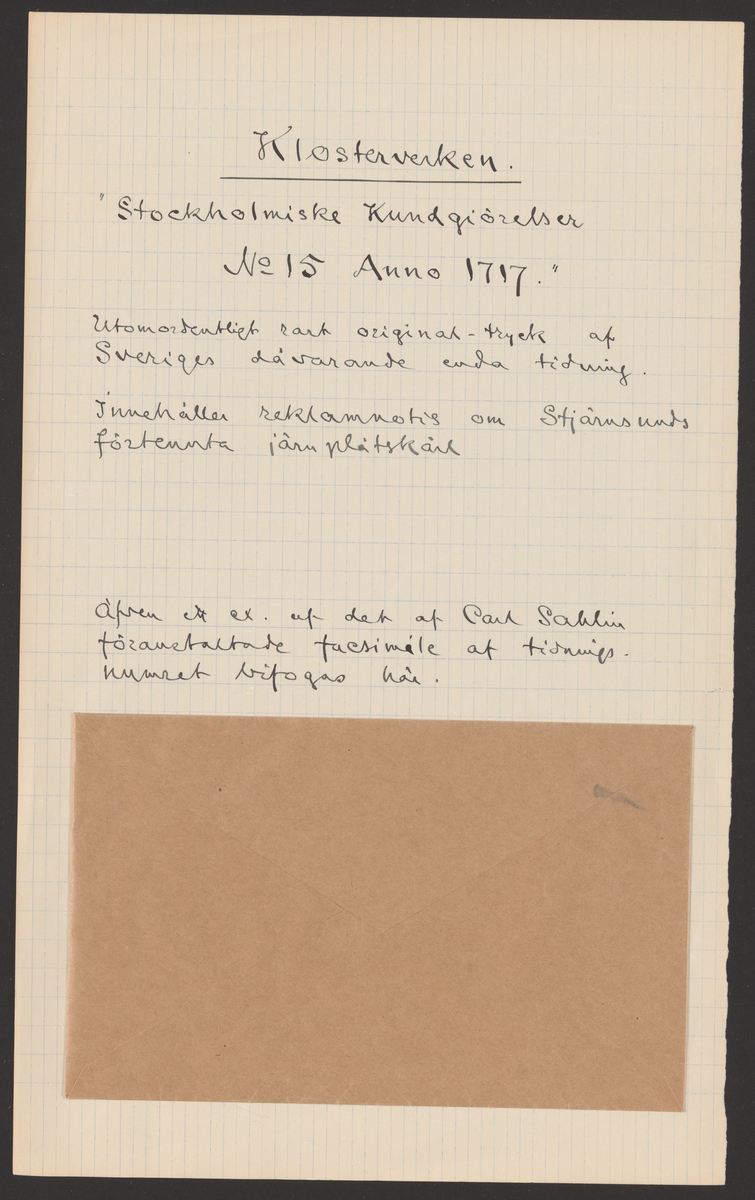 Klosterverken.
"Stockholmiske Kundgiörelser
No 15 Anno 1717."
Utomordentligt rart original-tryck af
Sveriges dåvarande enda tidning.
Innehåller reklamnotis om Stjärnsunds
förtennta järnplåtskärl
Äfven ett ex. af det af Carl Sahlin
föranstaltade facsimile af tidnings-
numret bifogas här.